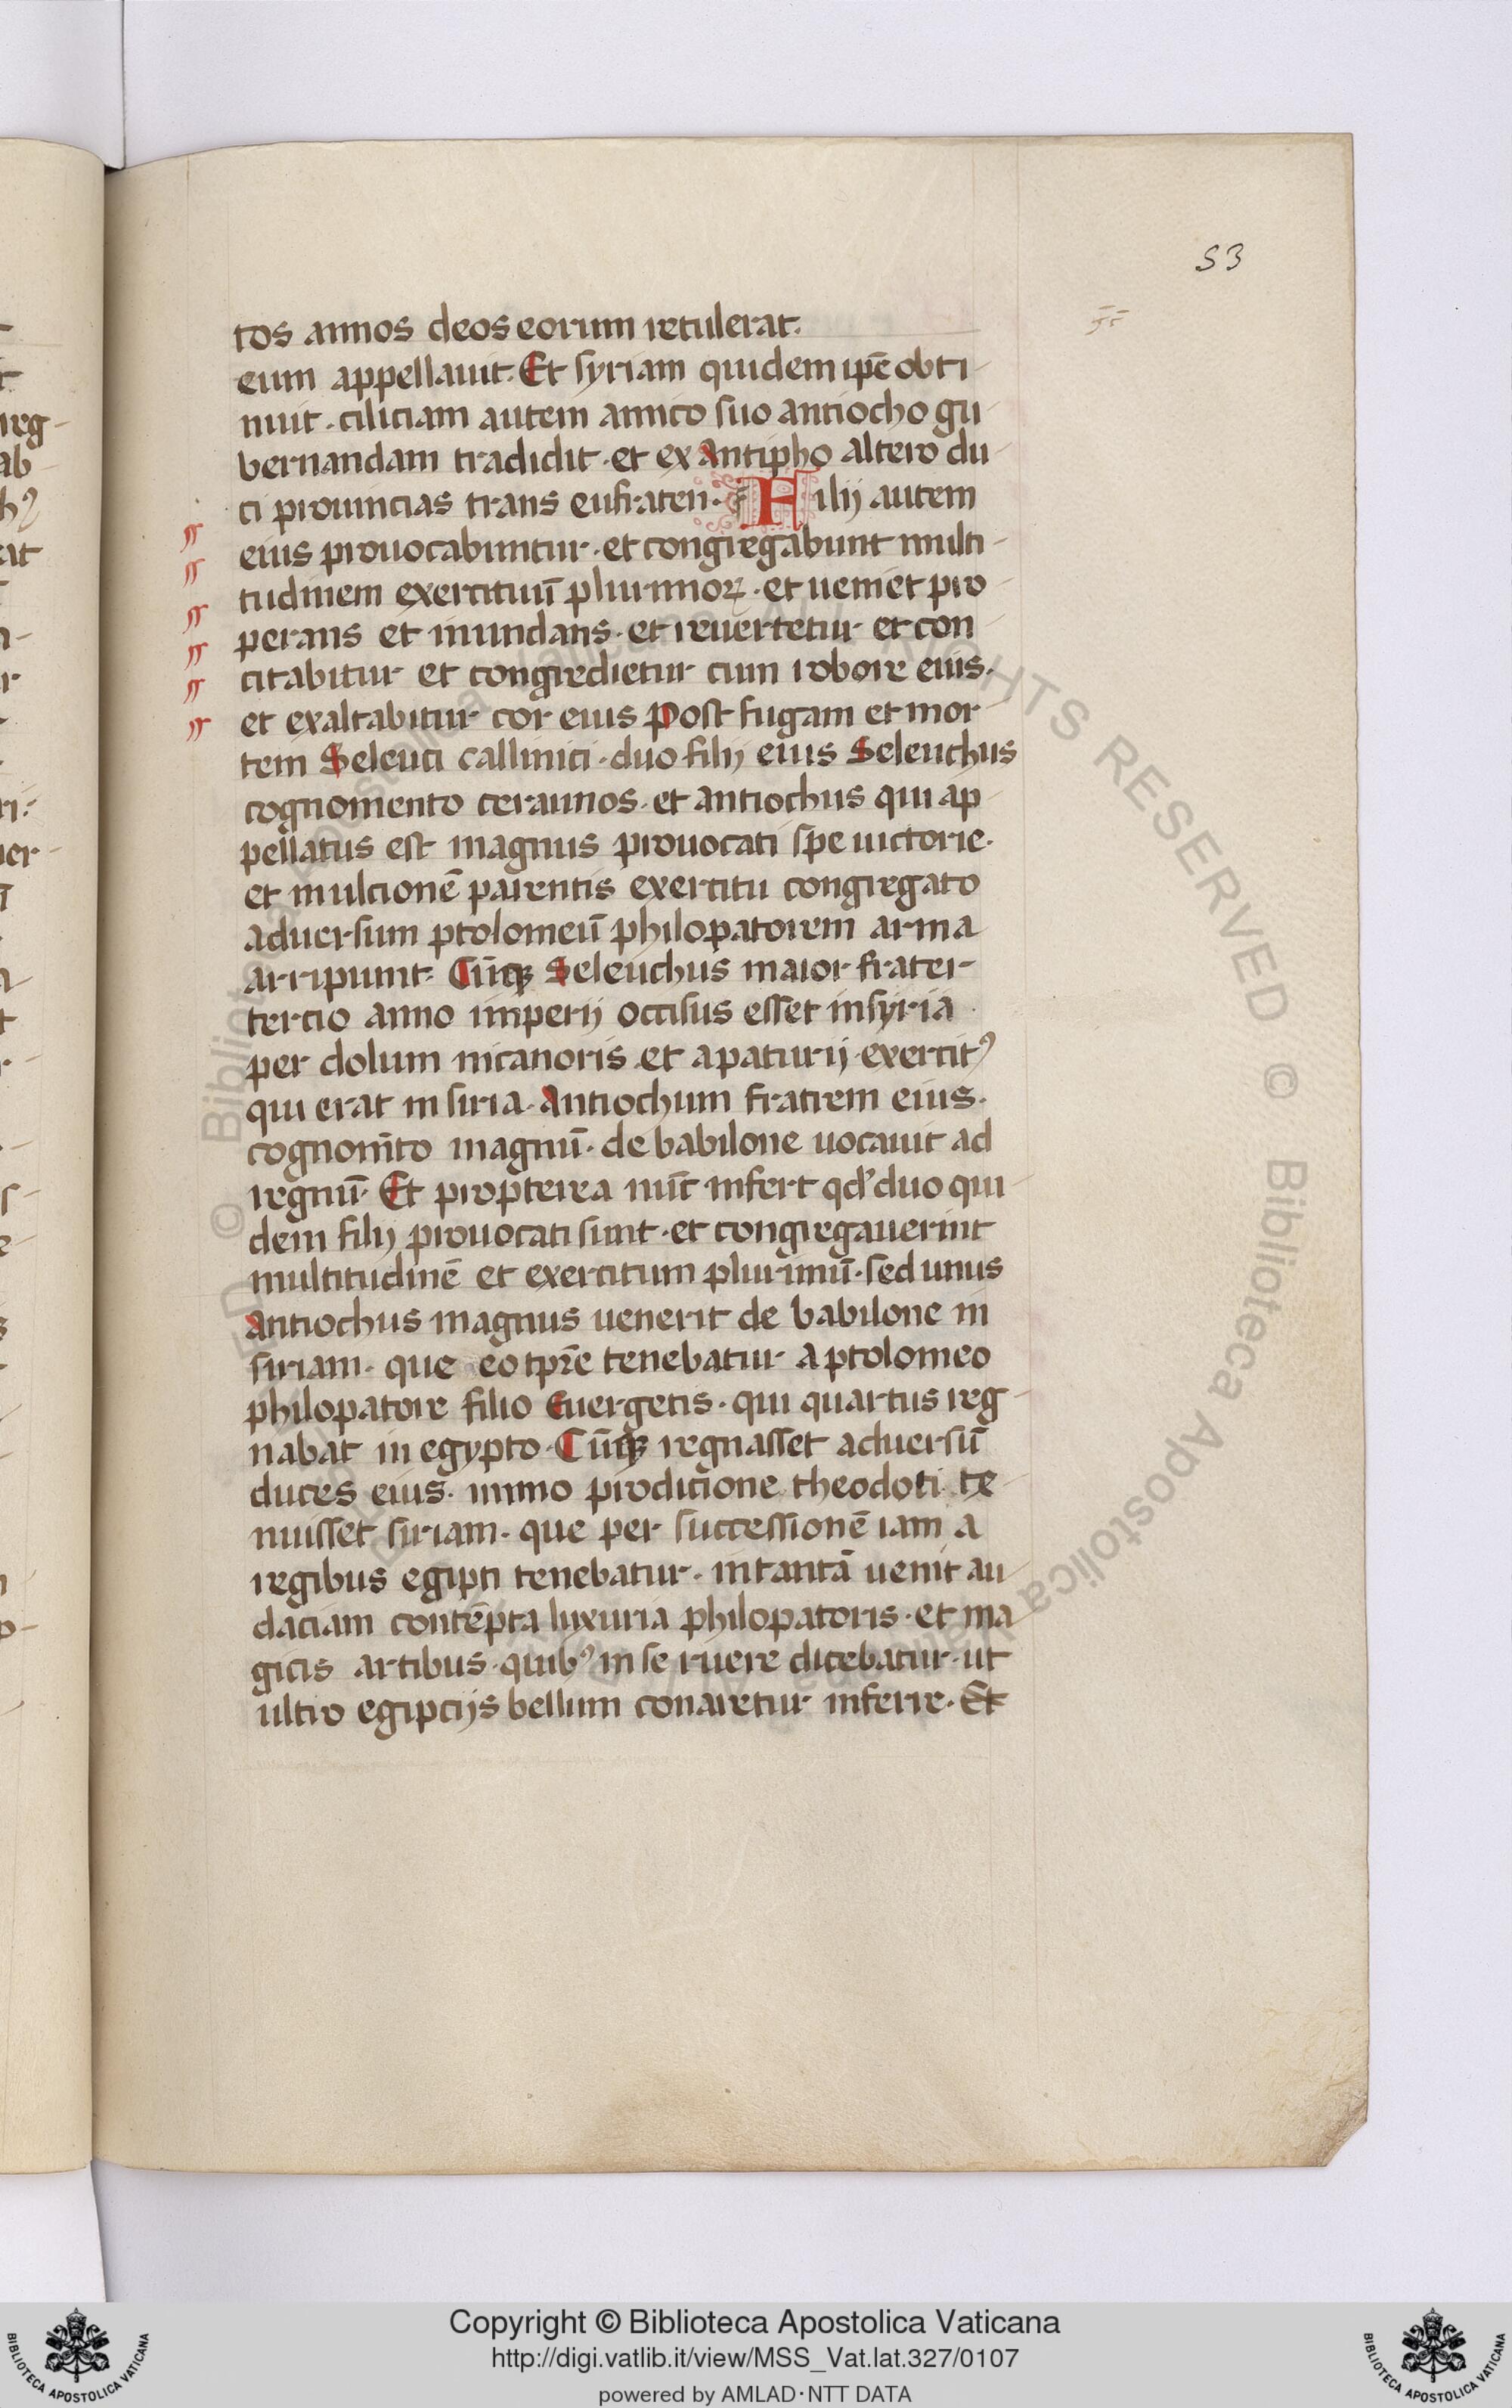 53
55
tos annos deos eorum retulerat.
eum appellauit. Et syriam quidem ip̄e obti
nuit. ciliciam autem amico suo antiocho gu
bernandam tradidit. et ex Antipho altero du
ci prouincias trans eufraten. Filij autem
eius prouocabuntur. et congregabunt multi
tudinem exercituū plurimoꝝ. et ueniet pro
perans et inundans. et reuertetur et con
citabitur et congredietur cum robore eius.
et exaltabitur cor eius Post fugam et mor
tem Seleuci callinici. duo filij eius Seleuchus
cognomento ceraunos. et antiochus qui ap
pellatus est magnus prouocati spe uictorie.
et mulcionē parentis exercitu congregato
aduersum ptolomeū philopatorem arma
arripunt. Cūqꝫ Seleuchus maior frater
tercio anno imperij occisus esset in syria
per dolum nicanoris. et apaturij. exercitꝰ
qui erat in siria. Antiochum fratrem eius.
cognom̄to magnū. de babilone uocauit ad
regnū. Et propterea nūc infert qd̓ duo qui
dem filij prouocati sunt. et congregauerint
multitudinē et exercitum plurimū. sed unus
Antiochus magnus uenerit de babilone in
siriam. que eo tp̄re tenebatur a ptolomeo
philopatore filio Euergetis. qui quartus reg
nabat in egypto. Cūqꝫ regnasset aduersū
duces eius. immo prodicione theodoti te
nuisset siriam. que per successionē iam a
regibus egipti tenebatur. in tantā uenit au
daciam contēpta luxuria philopatoris. et ma
gicis artibus. quibꝰ in se ruere dicebatur. ut
ultro egipcijs bellum conaretur inferre. Et
Copyright © Biblioteca Apostolica Vaticana
http://digi.vatlib.it/view/MSS_Vat.lat.327/0107
powered by AMLAD·NTT DATA
BIBLIOTECA APOSTOLICA VATICANA
BIBLIOTECA APOSTOLICA VATICANA